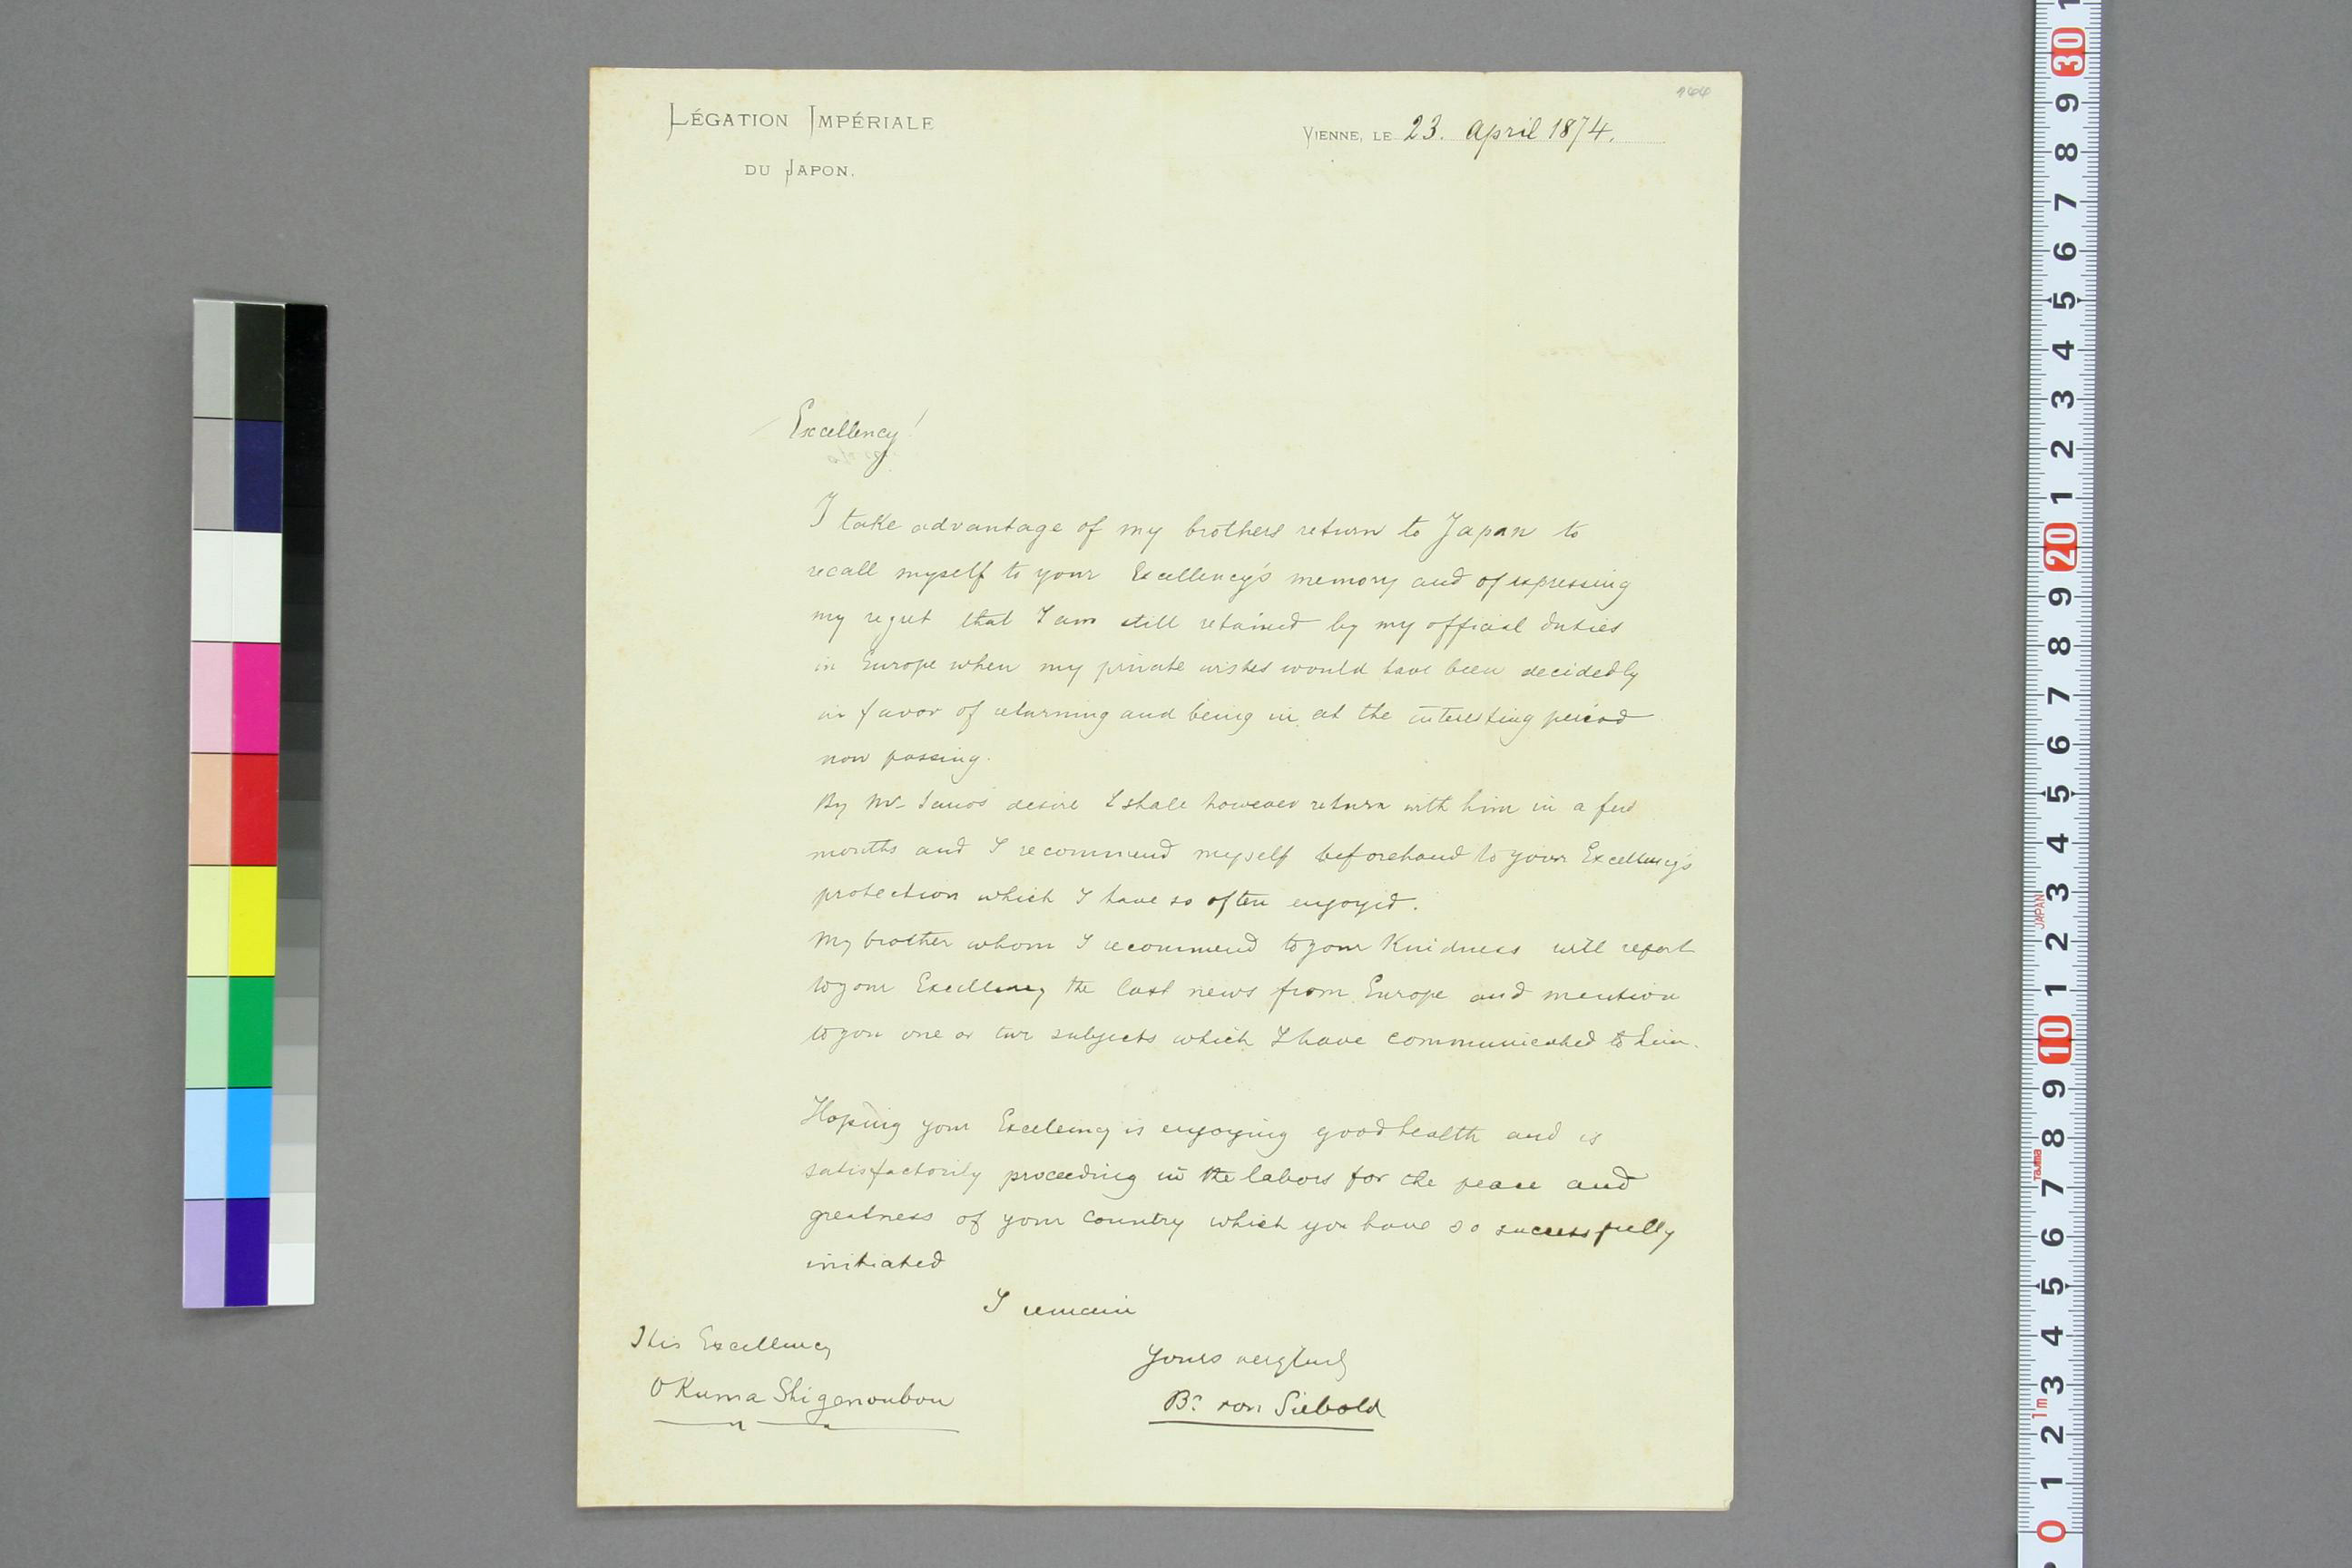 LÉGATION IMPÉRIALE
DU JAPON.
VIENNE, LE 23. April 1874.
Excellency!
I take advantage of my brothers return to Japan to
recall myself to your Excellency's memory and of expressing
my regret that I am still retained by my official duties
in Europe when my private wishes would have been decidedly
in favor of returning and being in at the interesting period
now passing.
By Mr Sanos desire I shall however return with him in a few
months and I recommend myself beforehand to your Excellency's
protection which I have so often enjoyed.
My brother whom I recommend to your Kindness will report
to your Excellency the last news from Europe and mention
to you one or two subjects which I have communicated to him.
Hoping your Excellency is enjoying good health and is
satisfactorily proceeding in the labors for the peace and
greatness of your country which you have so successfully
initiated
I remain
His Excellency
Yours
OKuma Shigenoubou
Bn von Siebold
30
9
8
7
6
5
4
3
2
1
20
9
8
7
6
5
4
3
JAPAN
2
1
10
9
8
Tajima
7
6
5
4
3
1m
2
1
0